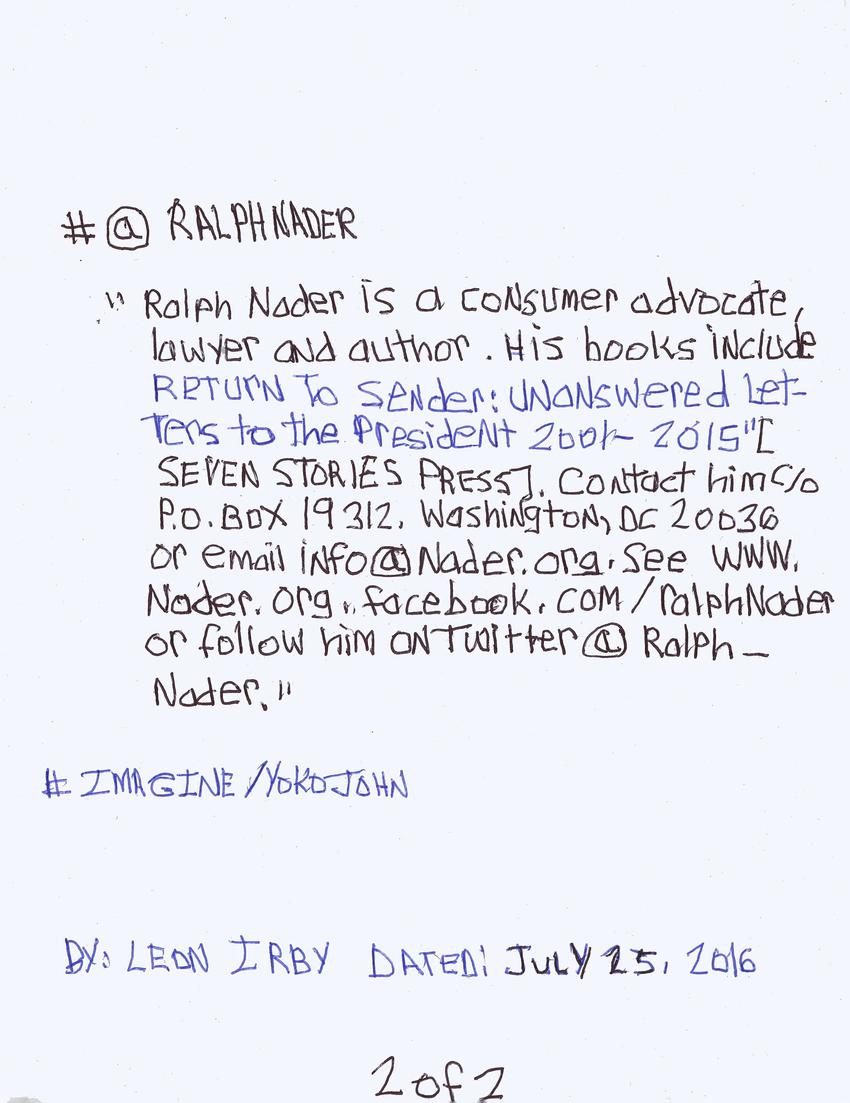 # @ RALPHNADER
" Ralph Nader is a consumer advocate,
lawyer and author. His books include
Return To Sender: Unanswered Let-
ters to the President 2001- 2015"[
SEVEN STORIES PRESS]. Contact him c/o
P.O. BOX 19312, Washington, DC 20036
or email info@Nader.org. See WWW.
Nader.org., facebook.com/ralphNader
or follow him on Twitter @ Ralph_
Nader."
# IMAGINE/YOKOJOHN
BY: LEON IRBY DATED: JULY 25, 2016
2 of 2